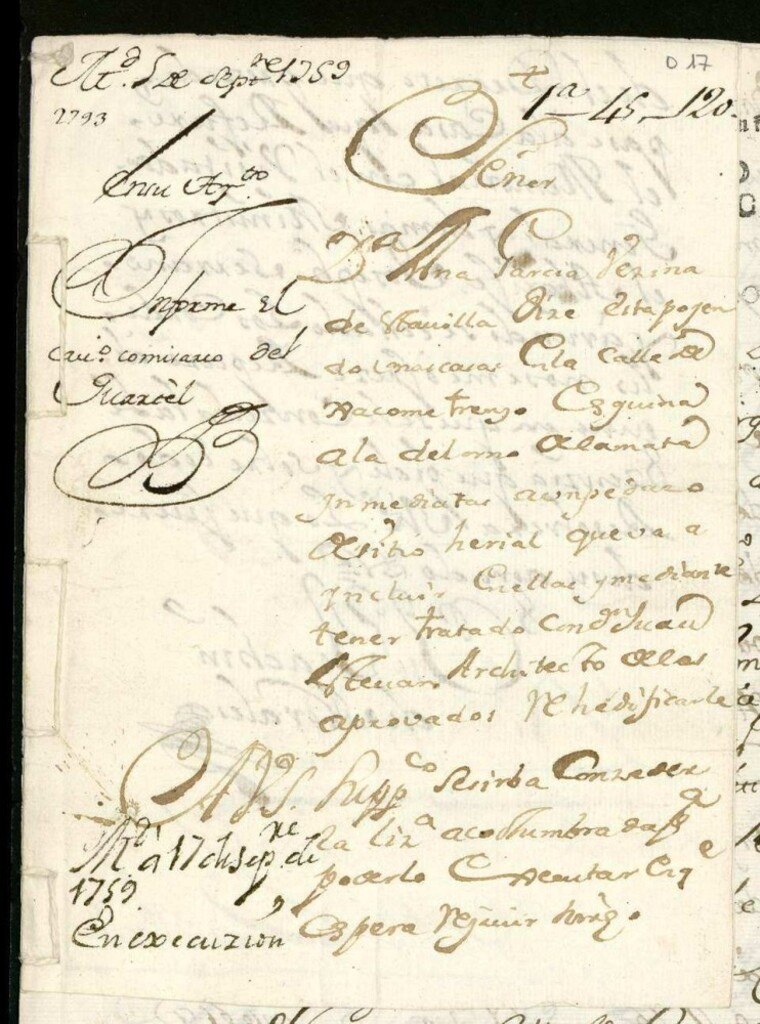 D 17
M.d 5 de sept.re 1759
1.a 45 120.
2793
En su Ay.to
Señor
Informe el
cav.o comisario del
Quartel
D.a Ana Garcia Vezina
de Stavilla Dize esta poseyen
do unas casas En la Calle de
Jacome trenzo Esquina
a la del orno de la mata
Inmediatas a un pedazo
de sitio herial que va a
Incluir En ellas y mediante
tener tratado con d.n Juan
Stevan Architecto de los
aprovados Rehedificarle
A V.S. Supp.co se sirba Conzeder
la liz.a acostumbrada p.a
poderlo Executar En q.e
Espera Rejivir mrd.
M.d a 17 de sep.re de
1759
En execuzion